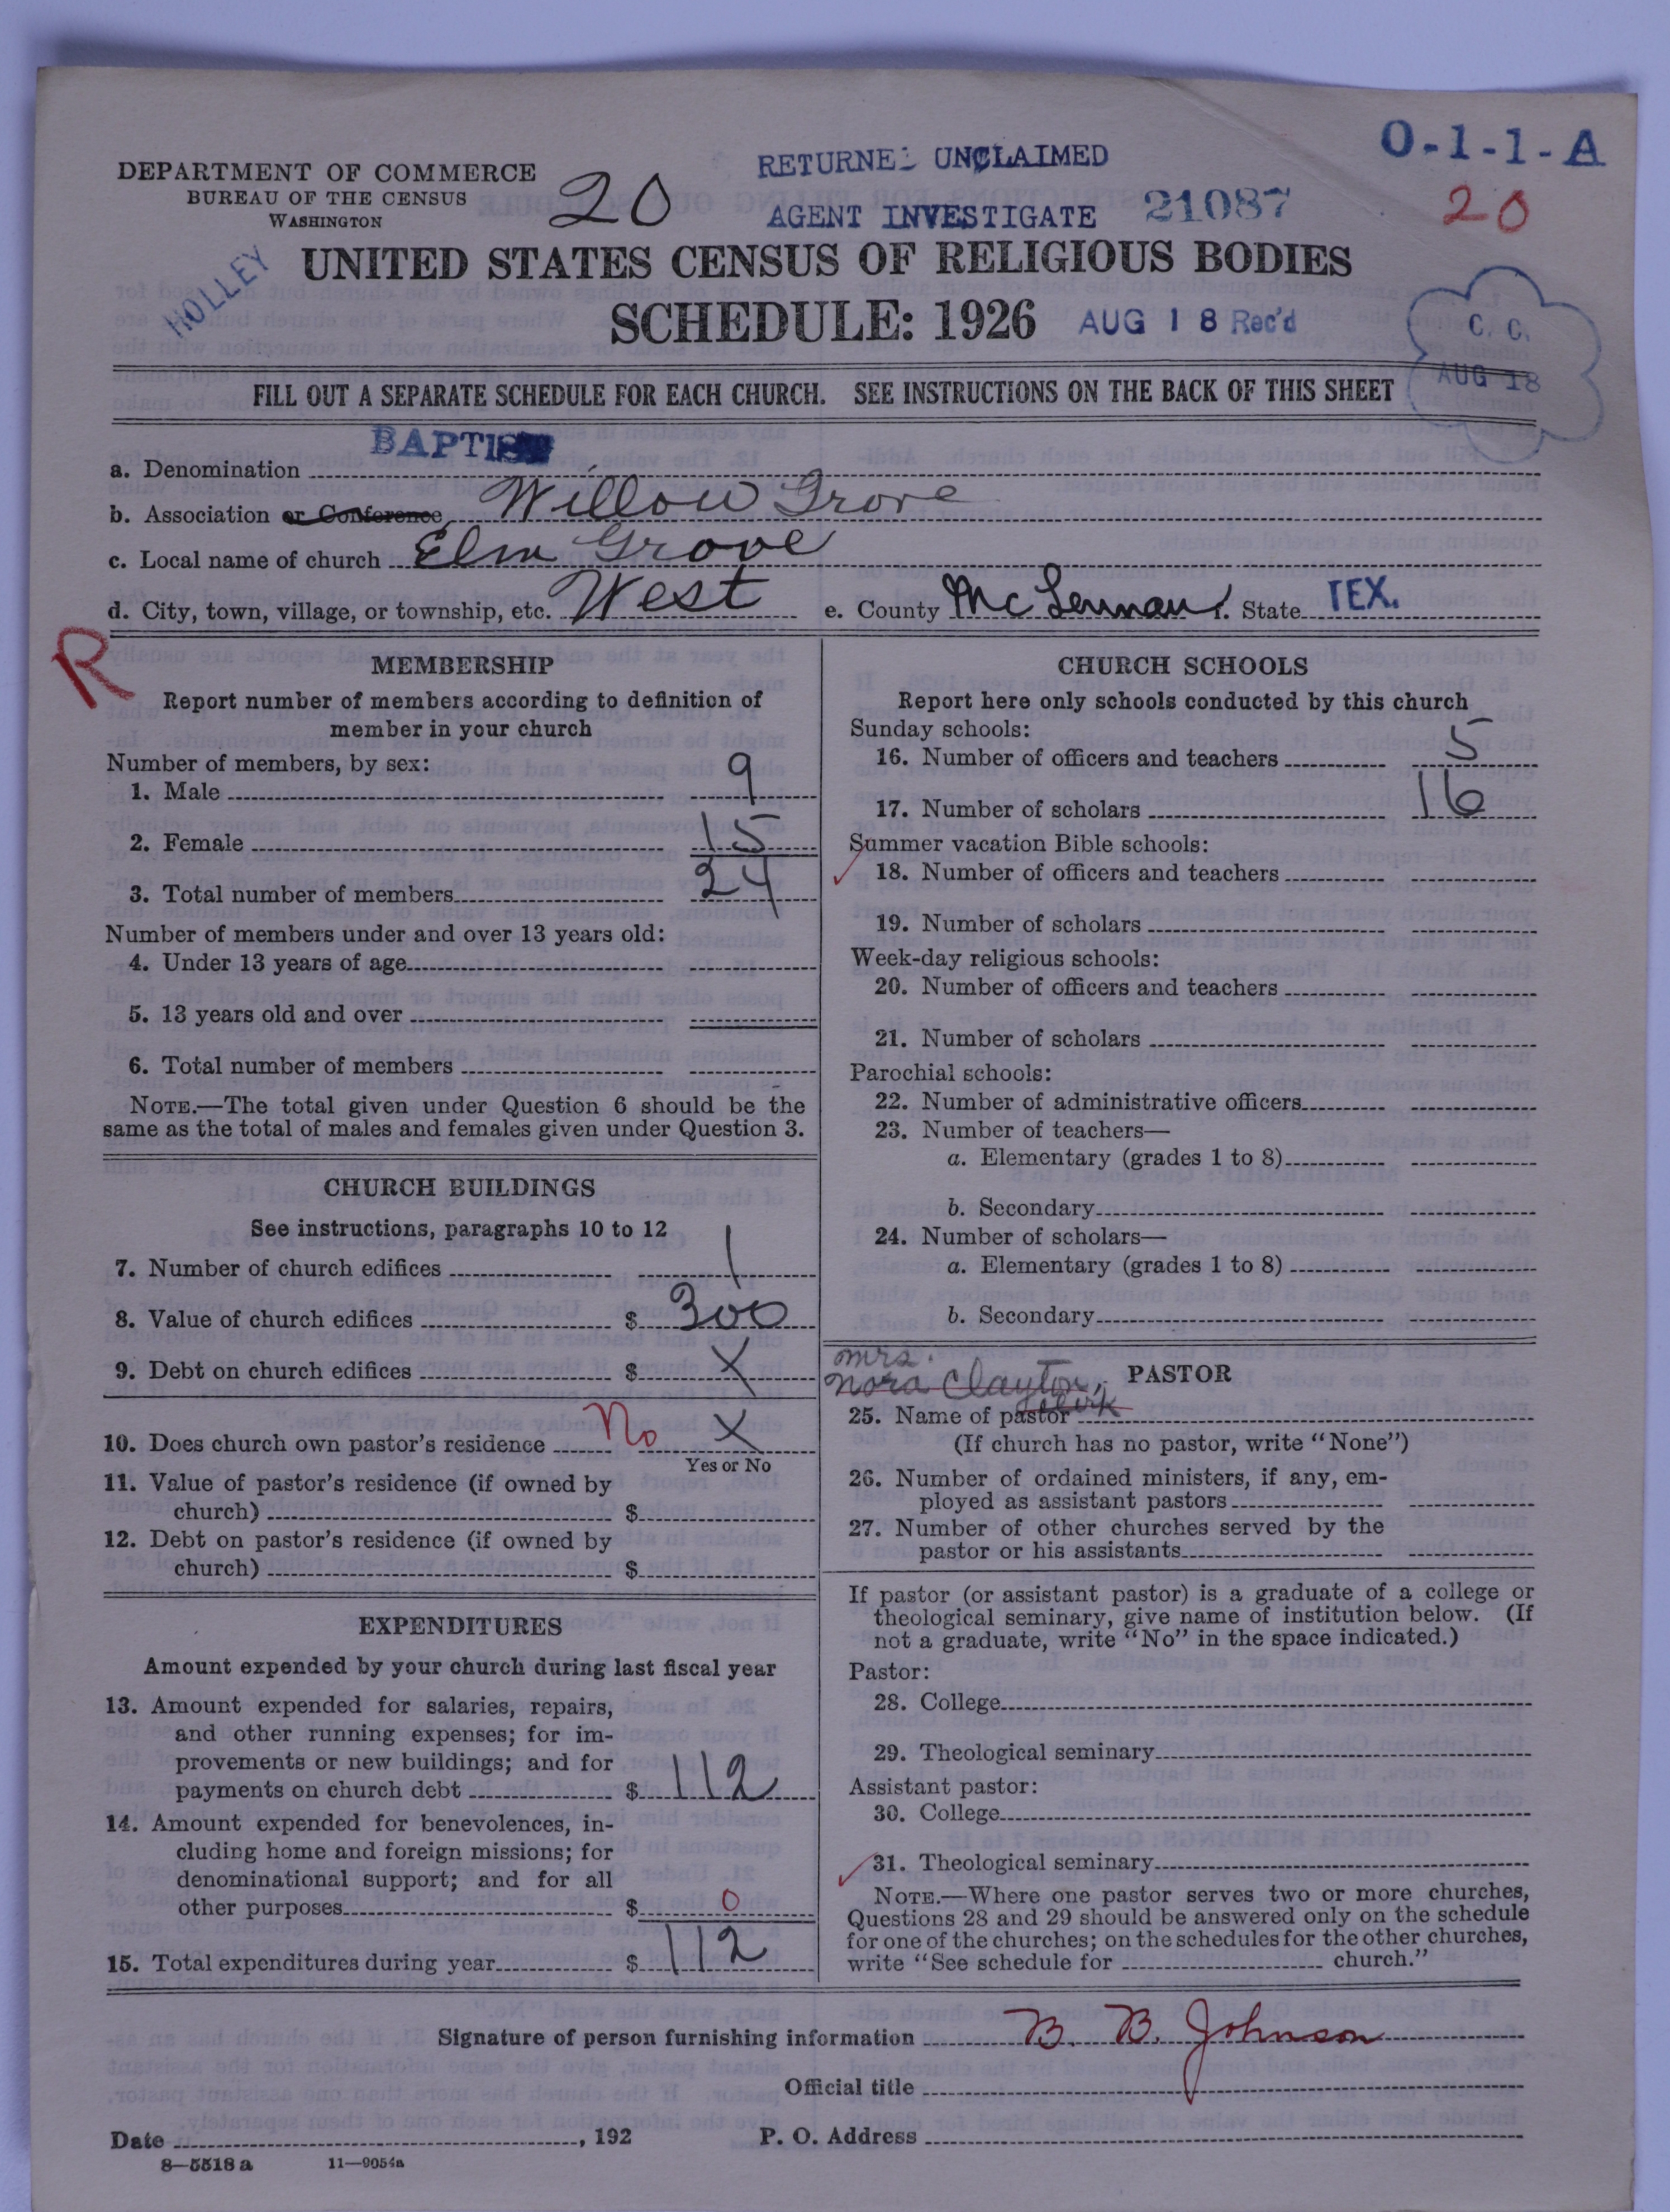 DEPARTMENT OF COMMERCE
BUREAU OF THE CENSUS
WASHINGTON
20
RETURNED UNCLAIMED
AGENT INVESTIGATE
21087
O-1-1-A
20
HOLLEY
UNITED STATES CENSUS OF RELIGIOUS BODIES
SCHEDULE: 1926
AUG 18 Rec'd
C. C.
AUG 18
FILL OUT A SEPARATE SCHEDULE FOR EACH CHURCH. SEE INSTRUCTIONS ON THE BACK OF THIS SHEET
a. Denomination BAPTIST
b. Association or Conference Willow Grove
c. Local name of church Elm Grove
d. City, town, village, or township, etc. West e. County McLennan f. State TEX.
R
MEMBERSHIP
Report number of members according to definition of
member in your church
Number of members, by sex:
1. Male 9
2. Female 15
3. Total number of members 24
Number of members under and over 13 years old:
4. Under 13 years of age
5. 13 years old and over
6. Total number of members
NOTE.—The total given under Question 6 should be the
same as the total of males and females given under Question 3.
CHURCH BUILDINGS
See instructions, paragraphs 10 to 12
7. Number of church edifices 1
8. Value of church edifices $ 300
9. Debt on church edifices $ X
10. Does church own pastor's residence No X
Yes or No
11. Value of pastor's residence (if owned by
church) $
12. Debt on pastor's residence (if owned by
church) $
EXPENDITURES
Amount expended by your church during last fiscal year
13. Amount expended for salaries, repairs,
and other running expenses; for im-
provements or new buildings; and for
payments on church debt $ 112
14. Amount expended for benevolences, in-
cluding home and foreign missions; for
denominational support; and for all
other purposes $ 0
15. Total expenditures during year $ 112
CHURCH SCHOOLS
Report here only schools conducted by this church
Sunday schools:
16. Number of officers and teachers 5
17. Number of scholars 16
Summer vacation Bible schools:
18. Number of officers and teachers
19. Number of scholars
Week-day religious schools:
20. Number of officers and teachers
21. Number of scholars
Parochial schools:
22. Number of administrative officers
23. Number of teachers—
a. Elementary (grades 1 to 8)
b. Secondary
24. Number of scholars—
a. Elementary (grades 1 to 8)
b. Secondary
PASTOR
Mrs.
Nora Clayton,
Clerk
25. Name of pastor
(If church has no pastor, write "None")
26. Number of ordained ministers, if any, em-
ployed as assistant pastors
27. Number of other churches served by the
pastor or his assistants
If pastor (or assistant pastor) is a graduate of a college or
theological seminary, give name of institution below. (If
not a graduate, write "No" in the space indicated.)
Pastor:
28. College
29. Theological seminary
Assistant pastor:
30. College
31. Theological seminary
NOTE.—Where one pastor serves two or more churches,
Questions 28 and 29 should be answered only on the schedule
for one of the churches; on the schedules for the other churches,
write "See schedule for church."
Signature of person furnishing information B. B. Johnson
Official title
Date , 192 P. O. Address
8—5518 a 11—9054a